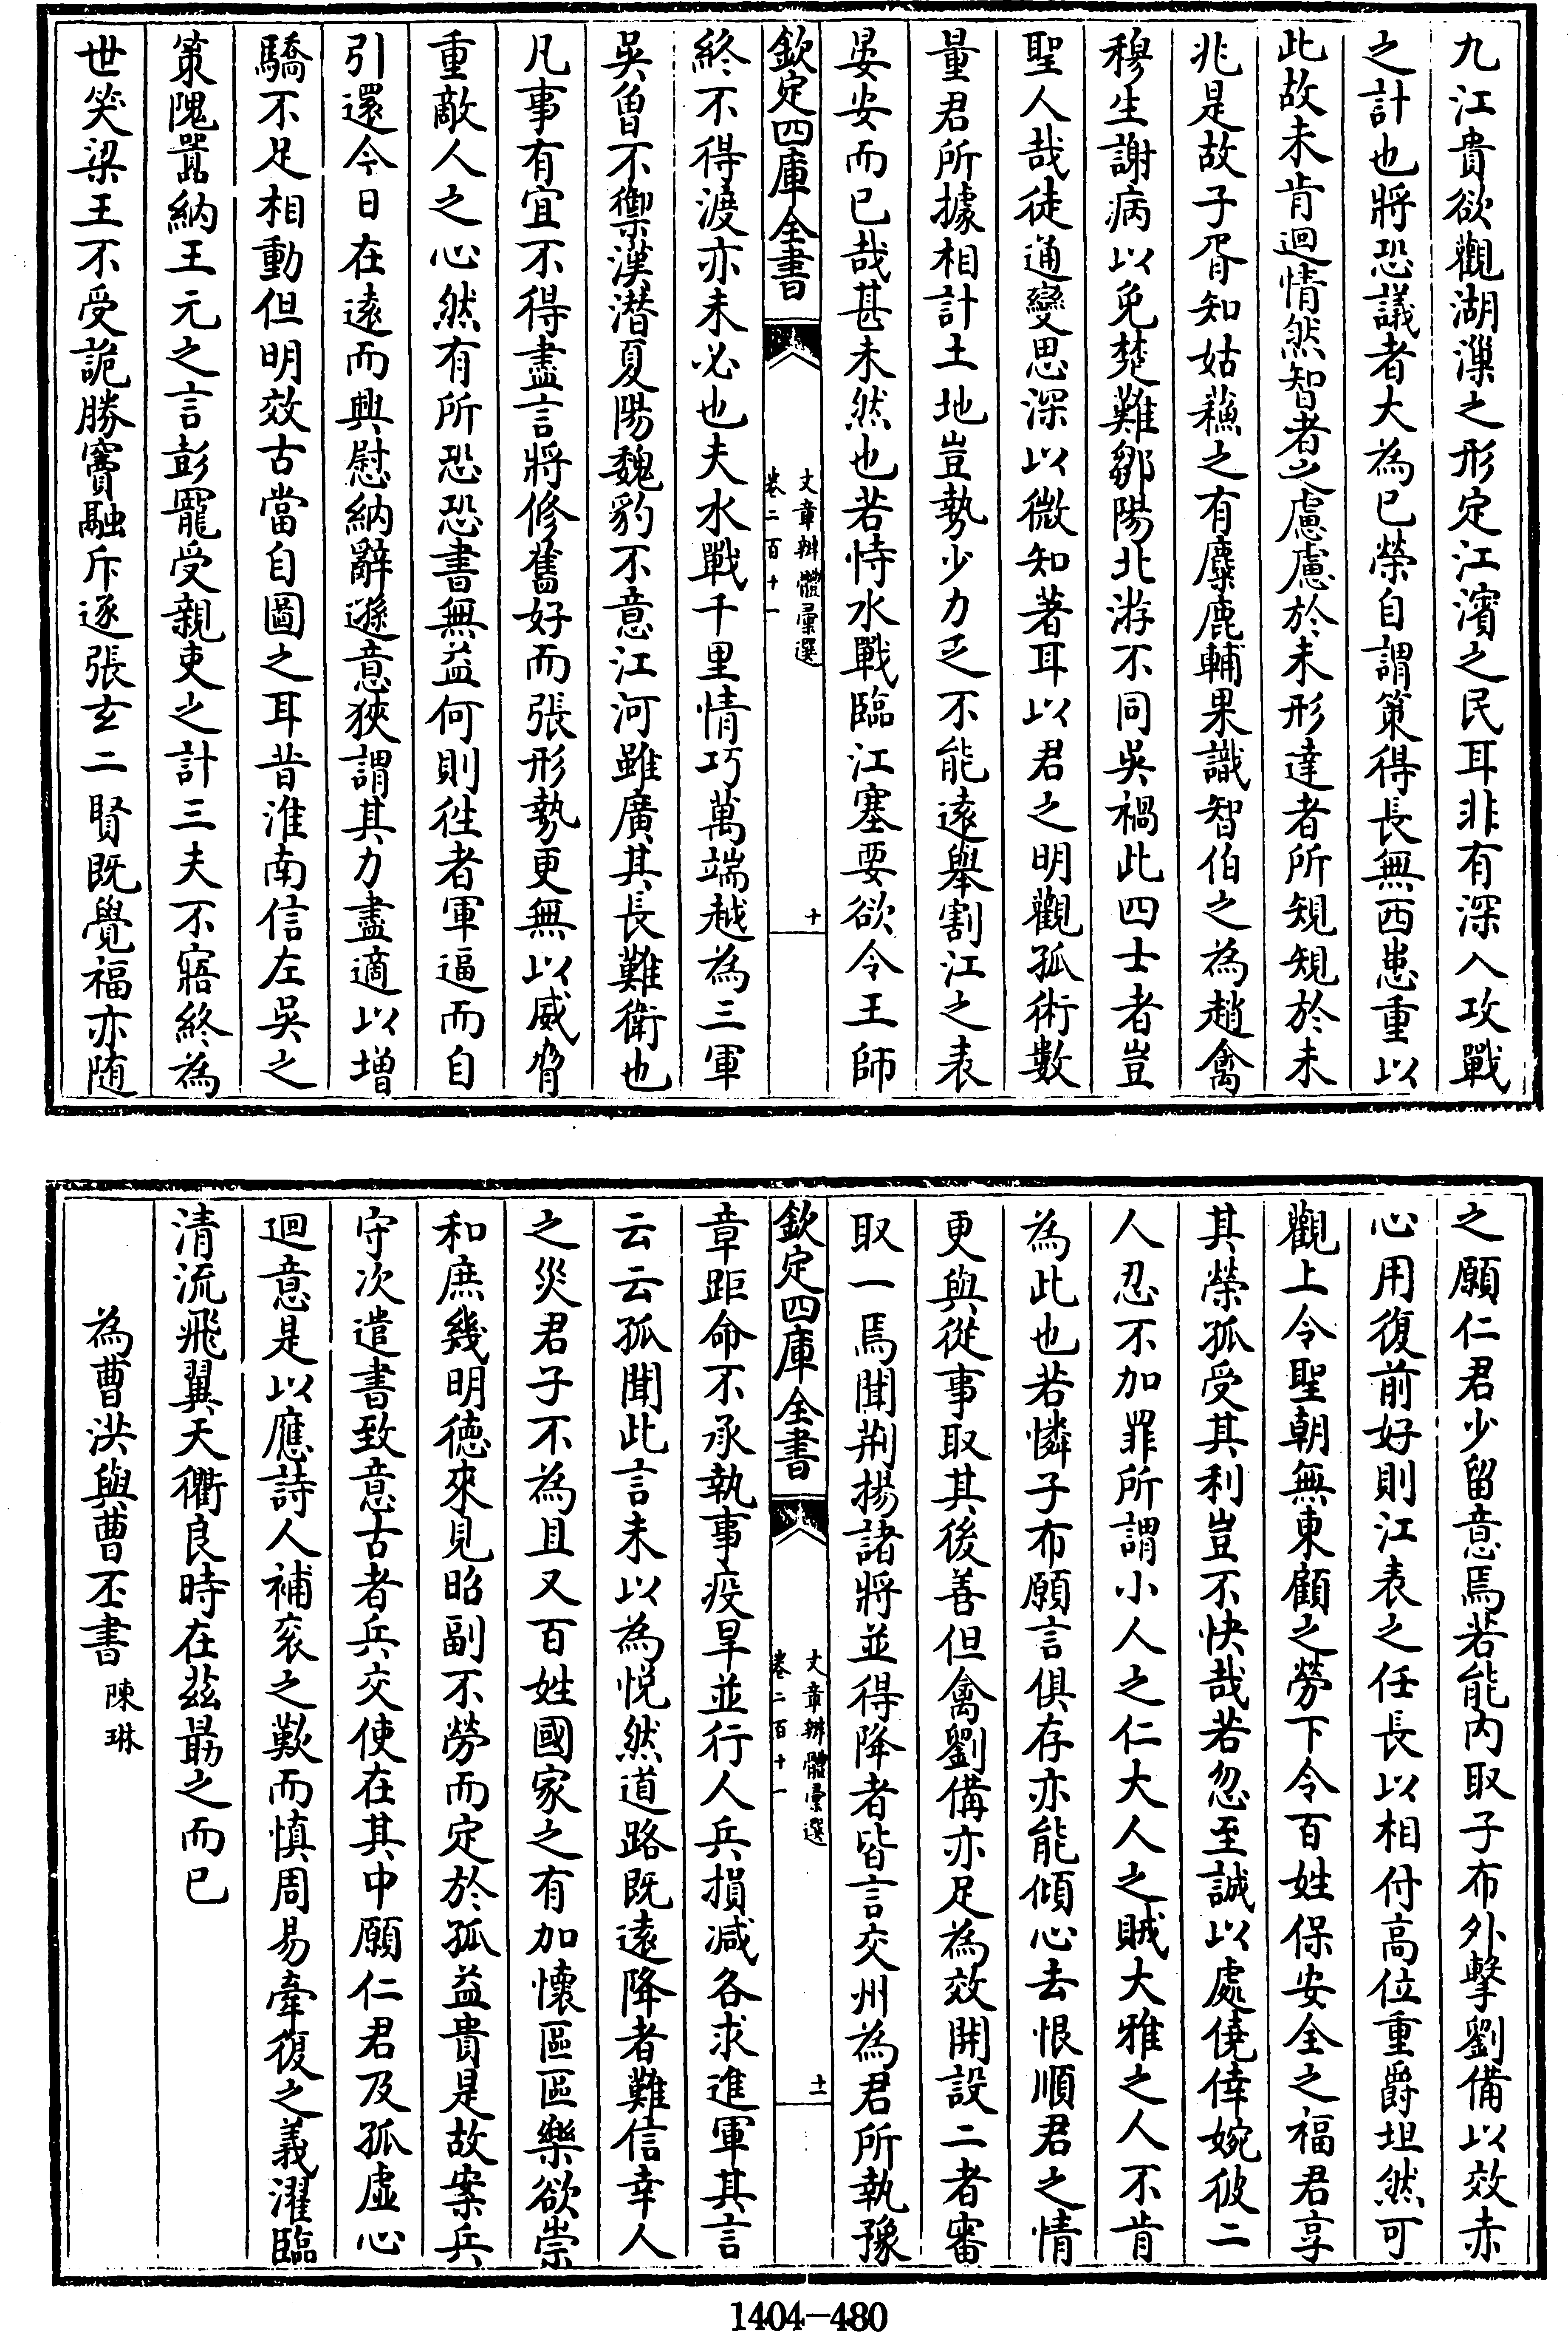 九江貴欲觀湖漅之形定江濱之民耳非有深入攻戰
之計也將恐議者大為已榮自謂策得長無西患重以
此故未肯迴情然智者之慮慮於未形達者所規規於未
兆是故子胥知姑蘓之有麋鹿輔果識智伯之為趙禽
穆生謝病以免楚難鄒陽北游不同吳禍此四士者豈
聖人哉徒通變思深以微知著耳以君之明觀孤術數
量君所據相計土地豈勢少力乏不能遠舉割江之表
晏安而已哉甚未然也若恃水戰臨江塞要欲令王師
欽定四庫全書
文章辨體彚選
卷二百十一
十
終不得渡亦未必也夫水戰千里情巧萬端越為三軍
吳曾不禦漢潛夏陽魏豹不意江河雖廣其長難衛也
凡事有宜不得盡言將修舊好而張形勢更無以威脅
重敵人之心然有所恐恐書無益何則徃者軍逼而自
引還今日在逺而興慰納辭遜意狹謂其力盡適以增
驕不足相動但明效古當自圖之耳昔淮南信左吳之
策隗嚚納王元之言彭寵受親吏之計三夫不寤終為
世笑梁王不受詭勝竇融斥逐張玄二賢既覺福亦随
之願仁君少留意焉若能内取子布外擊劉備以效赤
心用復前好則江表之任長以相付高位重爵坦然可
觀上令聖朝無東顧之勞下令百姓保安全之福君享
其榮孤受其利豈不快哉若忽至誠以處僥倖婉彼二
人忍不加罪所謂小人之仁大人之賊大雅之人不肯
為此也若憐子布願言俱存亦能傾心去恨順君之情
更與從事取其後善但禽劉備亦足為效開設二者審
取一焉聞荆揚諸將並得降者皆言交州為君所執豫
欽定四庫全書
文章辨體彚選
卷二百十一
十一
章距命不承執事疫旱並行人兵損减各求進軍其言
云云孤聞此言未以為悦然道路既遠降者難信幸人
之災君子不為且又百姓國家之有加懷區區樂欲崇
和庶幾明徳來見昭副不勞而定於孤益貴是故案兵
守次遣書致意古者兵交使在其中願仁君及孤虚心
迴意是以應詩人補衮之歎而慎周易牽復之義濯臨
清流飛翼天衢良時在茲朂之而已
為曹洪與曹丕書 陳琳
1404-480